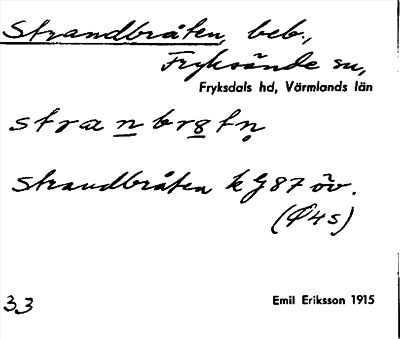 Strandbråten, beb.,
Fryksände sn,
Fryksdals hd, Värmlands län
stranbr8tn
Strandbråten k G87 öv.
(Ö4s)
33
Emil Eriksson 1915